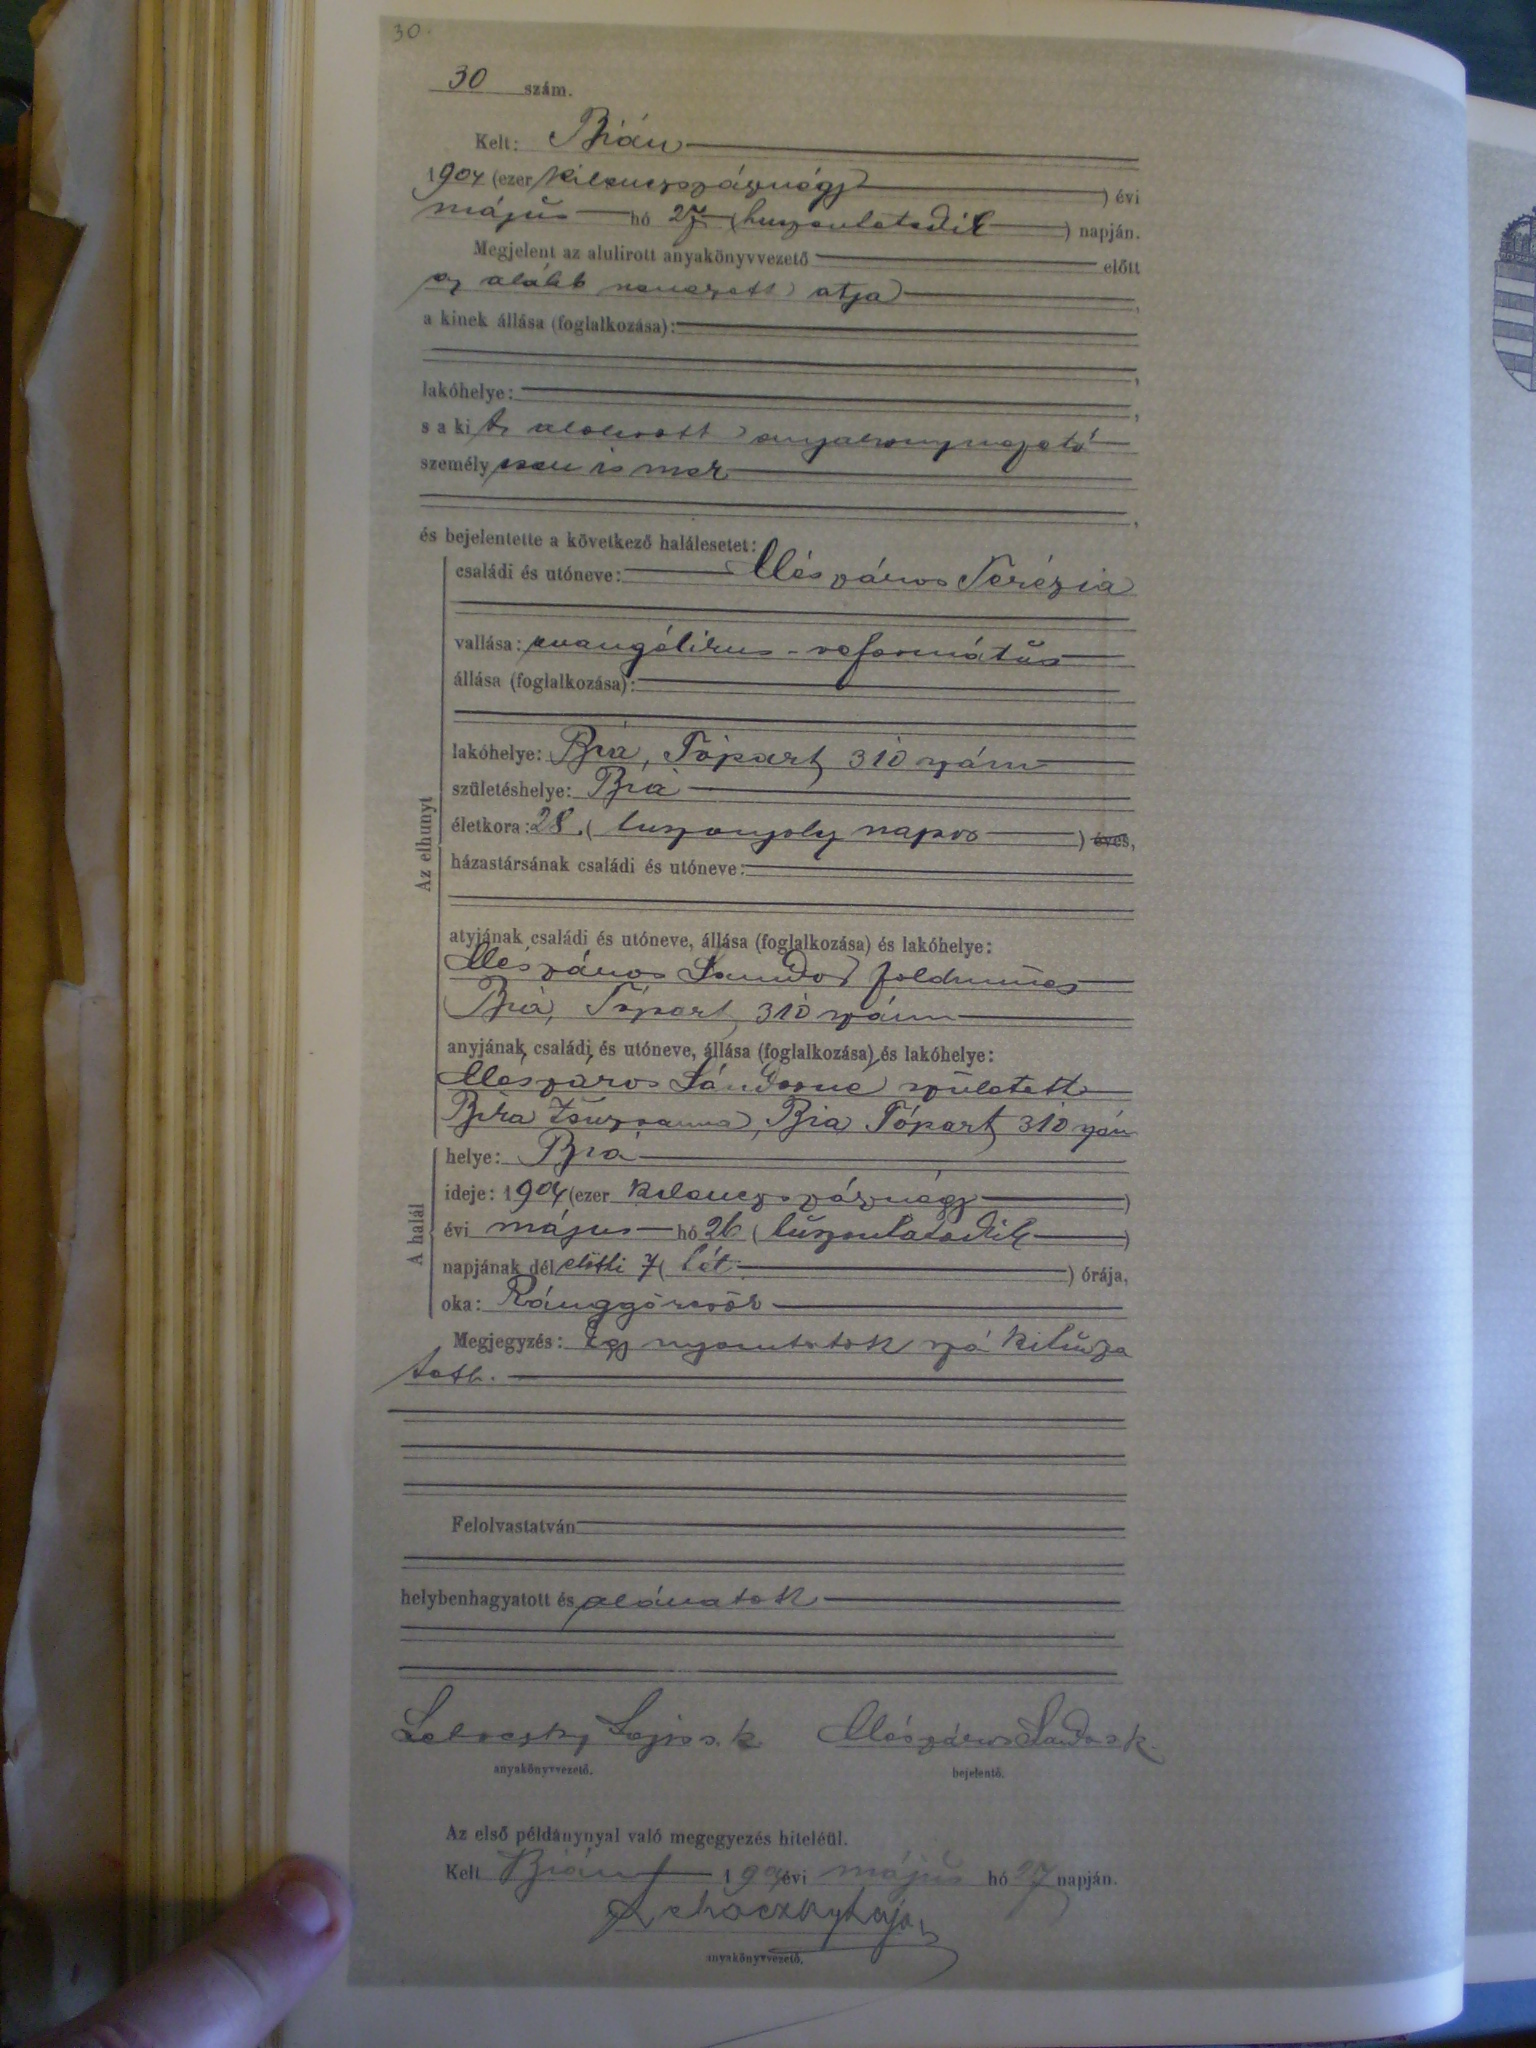 30.
30 szám.
Kelt: Bián
1904 (ezer kilenczszáznégy) évi
május hó 27 (huszonhetedik) napján.
Megjelent az alulirott anyakönyvvezető előtt
az alább nevezett atja,
a kinek állása (foglalkozása):
lakóhelye:
s a kit az alolirott anyakönyvvezető
személyesen ismer
és bejelentette a következő halálesetet:
Az elhunyt
családi és utóneve: Mészáros Terézia
vallása: evangélikus-református
állása (foglalkozása):
lakóhelye: Bia, Tópart 310 szám
születéshelye: Bia
életkora: 28. (huszonyolcz napos) éves,
házastársának családi és utóneve:
atyjának családi és utóneve, állása (foglalkozása) és lakóhelye:
Mészáros Sandor földmüves
Bia, Tópart 310 szám
anyjának családi és utóneve, állása (foglalkozása) és lakóhelye:
Mészáros Sándorné született
Zsuzsanna, Bia Tópart 310 szám
A halál
helye: Bia
ideje: 1904 (ezer kilenczszáznégy)
évi május hó 26 (huszonhatodik)
napjának délelőtti 7 (hét) órája,
oka: Ránggörcsök
Megjegyzés: Egy nyomtatott szó kihúza
tott.
Felolvastatván
helybenhagyatott és aláíratott
Lajos s. k. Mészáros Sandor s. k.
anyakönyvvezető. bejelentő.
Az első példánynyal való megegyezés hiteléül.
Kelt Bián 1904 évi május hó 27 napján.
anyakönyvvezető.